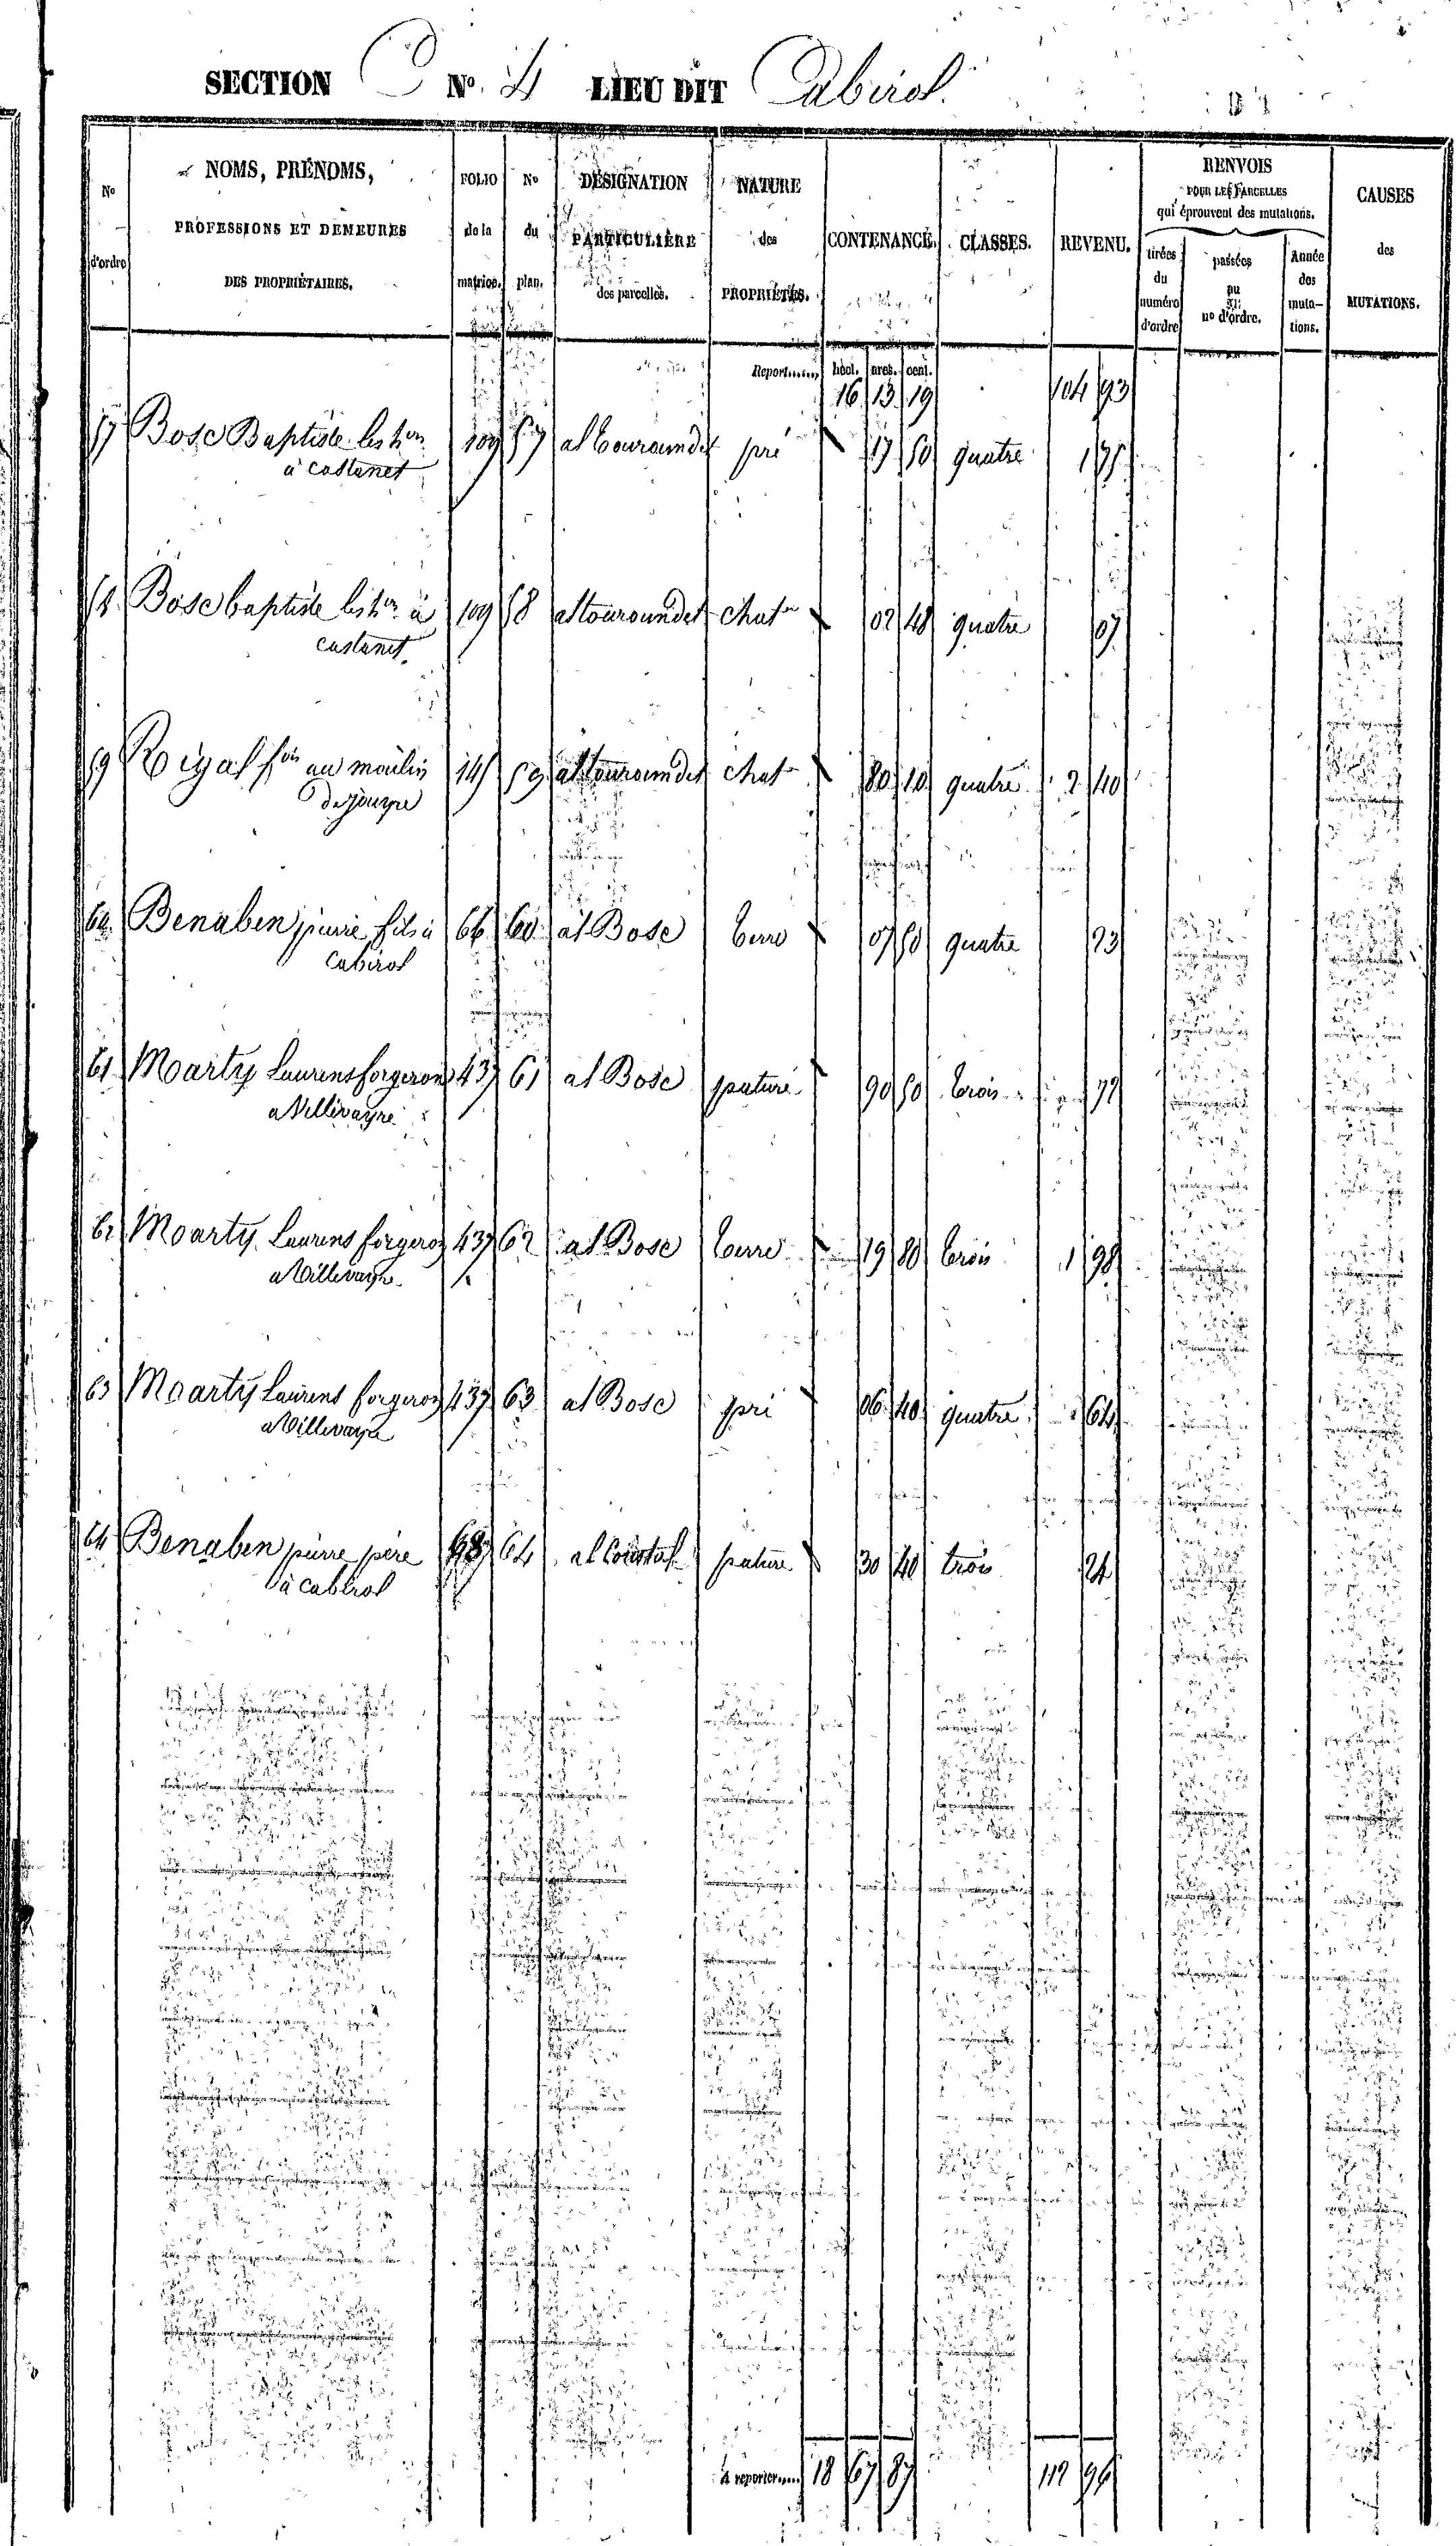 SECTION C No. 4 LIEU DIT Cabirol.
No d'ordre
NOMS, PRÉNOMS, PROFESSIONS ET DEMEURES DES PROPRIÉTAIRES.
FOLIO de la matrice.
No du plan.
DÉSIGNATION PARTICULIÈRE des parcelles.
NATURE des PROPRIÉTÉS.
CONTENANCE.
CLASSES.
REVENU.
RENVOIS POUR LES PARCELLES qui éprouvent des mutations.
tirées du numéro d'ordre
passées au no d'ordre.
Année des mutations.
CAUSES des MUTATIONS.
Report...... hect. ares. cent.
16 13 19 104 93
57 Bosc Baptiste les hers 109 57 al touroundet pré 17 50 quatre 1 75
à castanet
58 Bosc baptiste les hers à 109 58 al touroundet chatr 02 48 quatre 07
castanet
59 Rigal fois au moulin 145 59 al touroundet chatr 80 10 quatre 2 40
60 Benaben pierre fils à 66 60 al Bosc terre 07 50 quatre 23
Cabirol
61 Marty Laurens forgeron 437 61 al Bosc pature 90 50 trois 72
a Villevayre
62 Marty Laurens forgeron 437 62 al Bosc terre 19 80 trois 1 98
a Villevayre
63 Marty Laurens forgeron 437 63 al Bosc pré 06 40 quatre 64
a Villevayre
64 Benaben pierre père 64 al Coustal pature 30 40 trois 24
à cabirol
A reporter...... 18 67 87 112 96